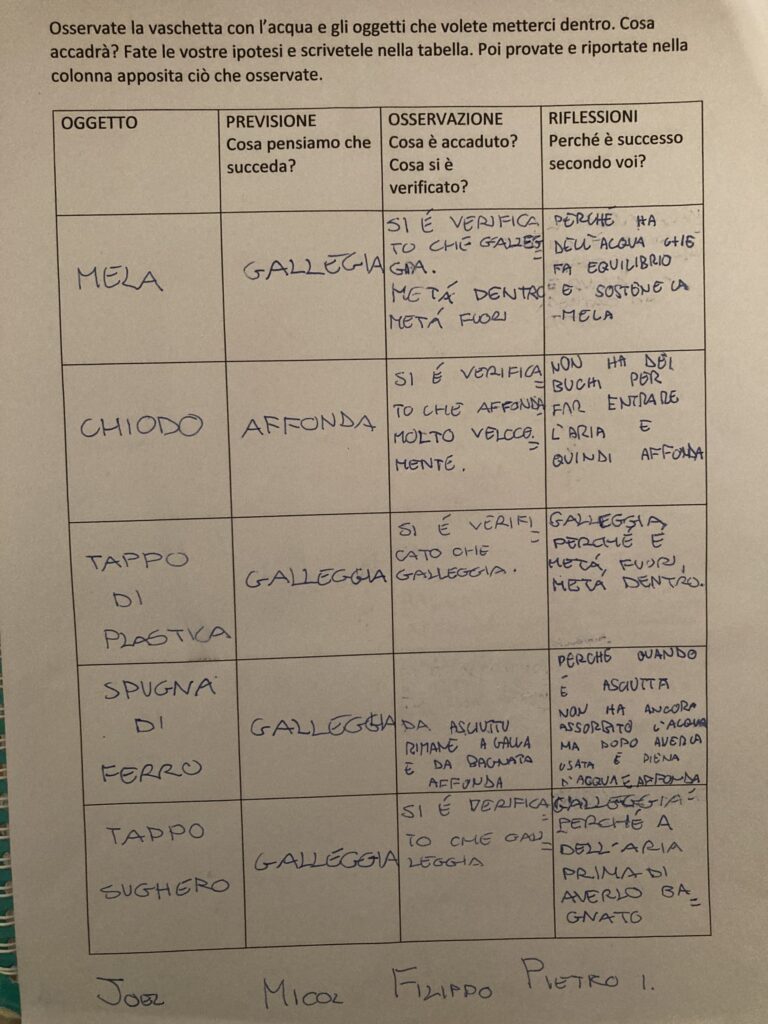 Osservate la vaschetta con l'acqua e gli oggetti che volete metterci dentro. Cosa
accadrà? Fate le vostre ipotesi e scrivetele nella tabella. Poi provate e riportate nella
colonna apposita ciò che osservate.
OGGETTO
PREVISIONE
Cosa pensiamo che
succeda?
OSSERVAZIONE
Cosa è accaduto?
Cosa si è
verificato?
RIFLESSIONI
Perché è successo
secondo voi?
MELA
GALLEGIA
SI É VERIFICA
TO CHE GALLEG
GIA.
METÁ DENTRO
METÁ FUORI
PERCHÉ HA
DELL'ACQUA CHE
FA EQUILIBRIO
E SOSTENE LA
MELA
CHIODO
AFFONDA
SI É VERIFICA=
TO CHE AFFONDA
MOLTO VELOCE=
MENTE.
NON HA DEI
BUCHI PER
FAR ENTRARE
L'ARIA E
QUINDI AFFONDA
TAPPO
DI
PLASTICA
GALLEGGIA
SI É VERIFI=
CATO CHE
GALLEGGIA.
GALLEGGIA,
PERCHÉ É
METÁ, FUORI,
METÁ DENTRO.
SPUGNA
DI
FERRO
GALLEGGIA
DA ASCIUTTU
RIMANE A GALLA
E DA BAGNATA
AFFONDA
PERCHÉ QUANDO
É ASCIUTTA
NON HA ANCORA
ASSORBITO L'ACQUA
MA DOPO AVERLA
USATA É PIENA
D'ACQUA E AFFONDA
TAPPO
SUGHERO
GALLEGGIA
SI É VERIFICA=
TO CHE GAL=
LEGGIA
GALLEGGIA
PERCHÉ A
DELL'ARIA
PRIMA DI
AVERLO BA=
GNATO
JOEL MICOL FILIPPO PIETRO I.